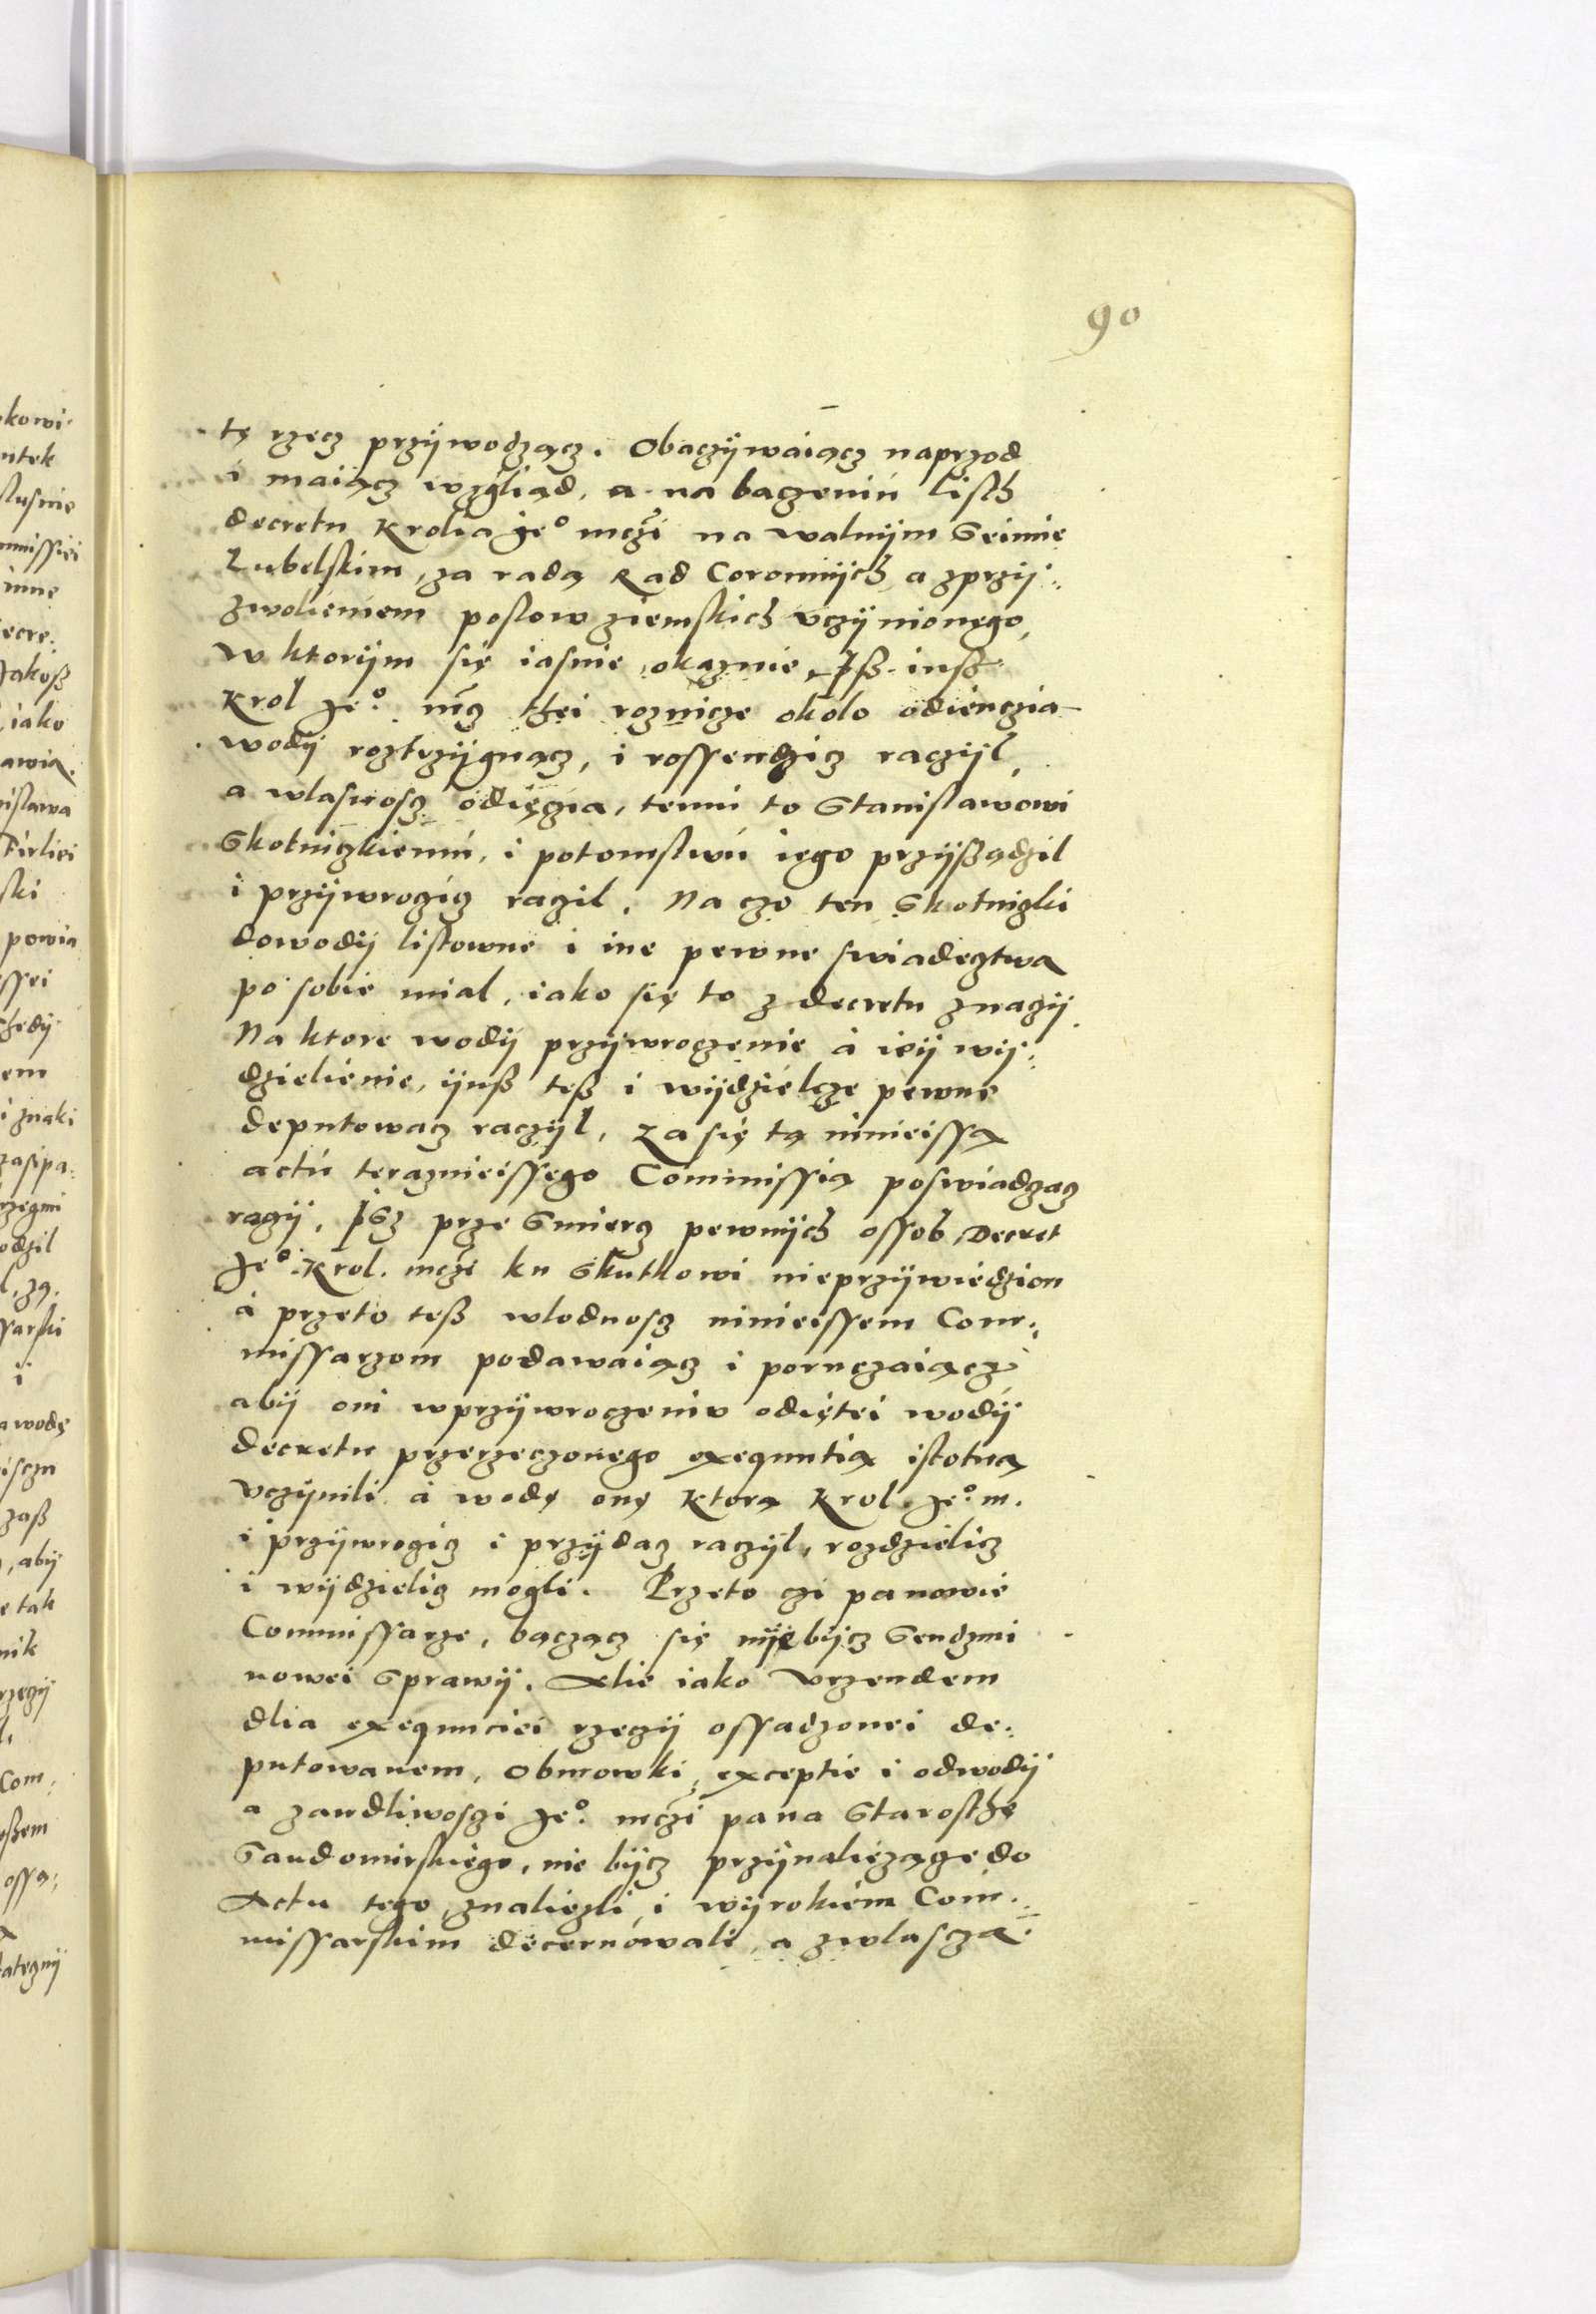 90
tę rzecz przÿwodzącz. Obaczÿwaiącz naprzod
i maiącz wzgliąd, a na baczeniu listh
decretu Krolia Je° mczi na walnÿm Seimie
Lubelskim, za radą Rad Coronnÿch a zprzÿ:
zwolieniem poslow ziemskich vczÿnionego,
w ktorÿm się iasnie okaznie, Iß iusz
Krol Je° mcz thei roznicze około odienczia
wodÿ roztrzÿgnącz, i rossendzicz raczÿl,
a wlasnosz odięczia, temu to Stanislawowi
Skotniczkiemu, i potomstwu iego przÿsządzil
i przÿwrocicz raczil. Na czo ten Skotnizki
dowodÿ listowne i ine pewne swiadecztwa
po sobie mial, iako się to z decretu znaczÿ.
Na ktore wodÿ przÿwroczenie a ieÿ wÿ:
dzielienie, ÿuß teß i wÿdzielcze pewne
deputowacz raczÿl, Za się tą ninieissą
actu teraznieissego Commissią poswiadczacz
raczÿ, ÿsz prze Smiercz pewnÿch ossob, Decret
Je° Krol. mczi ku Skutkowi nieprzÿwiedzion
a przeto teß wlodnosz ninieissem Com:
missarzom podawaiącz i poruczaiącz
abÿ oni wprzÿwroczeniu odiętei wodÿ
decretu przerzeczonego exequutią istotną
vczÿnili a wodę onę Ktorą Krol. Je° m.
i przÿwrocicz i przÿdacz raczÿl, rozdzielicz
i wÿdzielicz mogli. Przeto czi panowie
Commissarze, bacząc się nÿebÿcz Sendzmi
nowei Sprawÿ. Alie iako Vrzendem
dlia exequuciei rzeczÿ ossadzonei de:
putowanem, Obmowki, exceptie i odwodÿ
a zandliwoszi Je° mczi pana Starosthe
Sandomirskiego, nie bÿcz przÿnaliezącze do
Actu tego, znaliezli, i wÿrokiem Com:
missarskim decernowali, a zwlascza